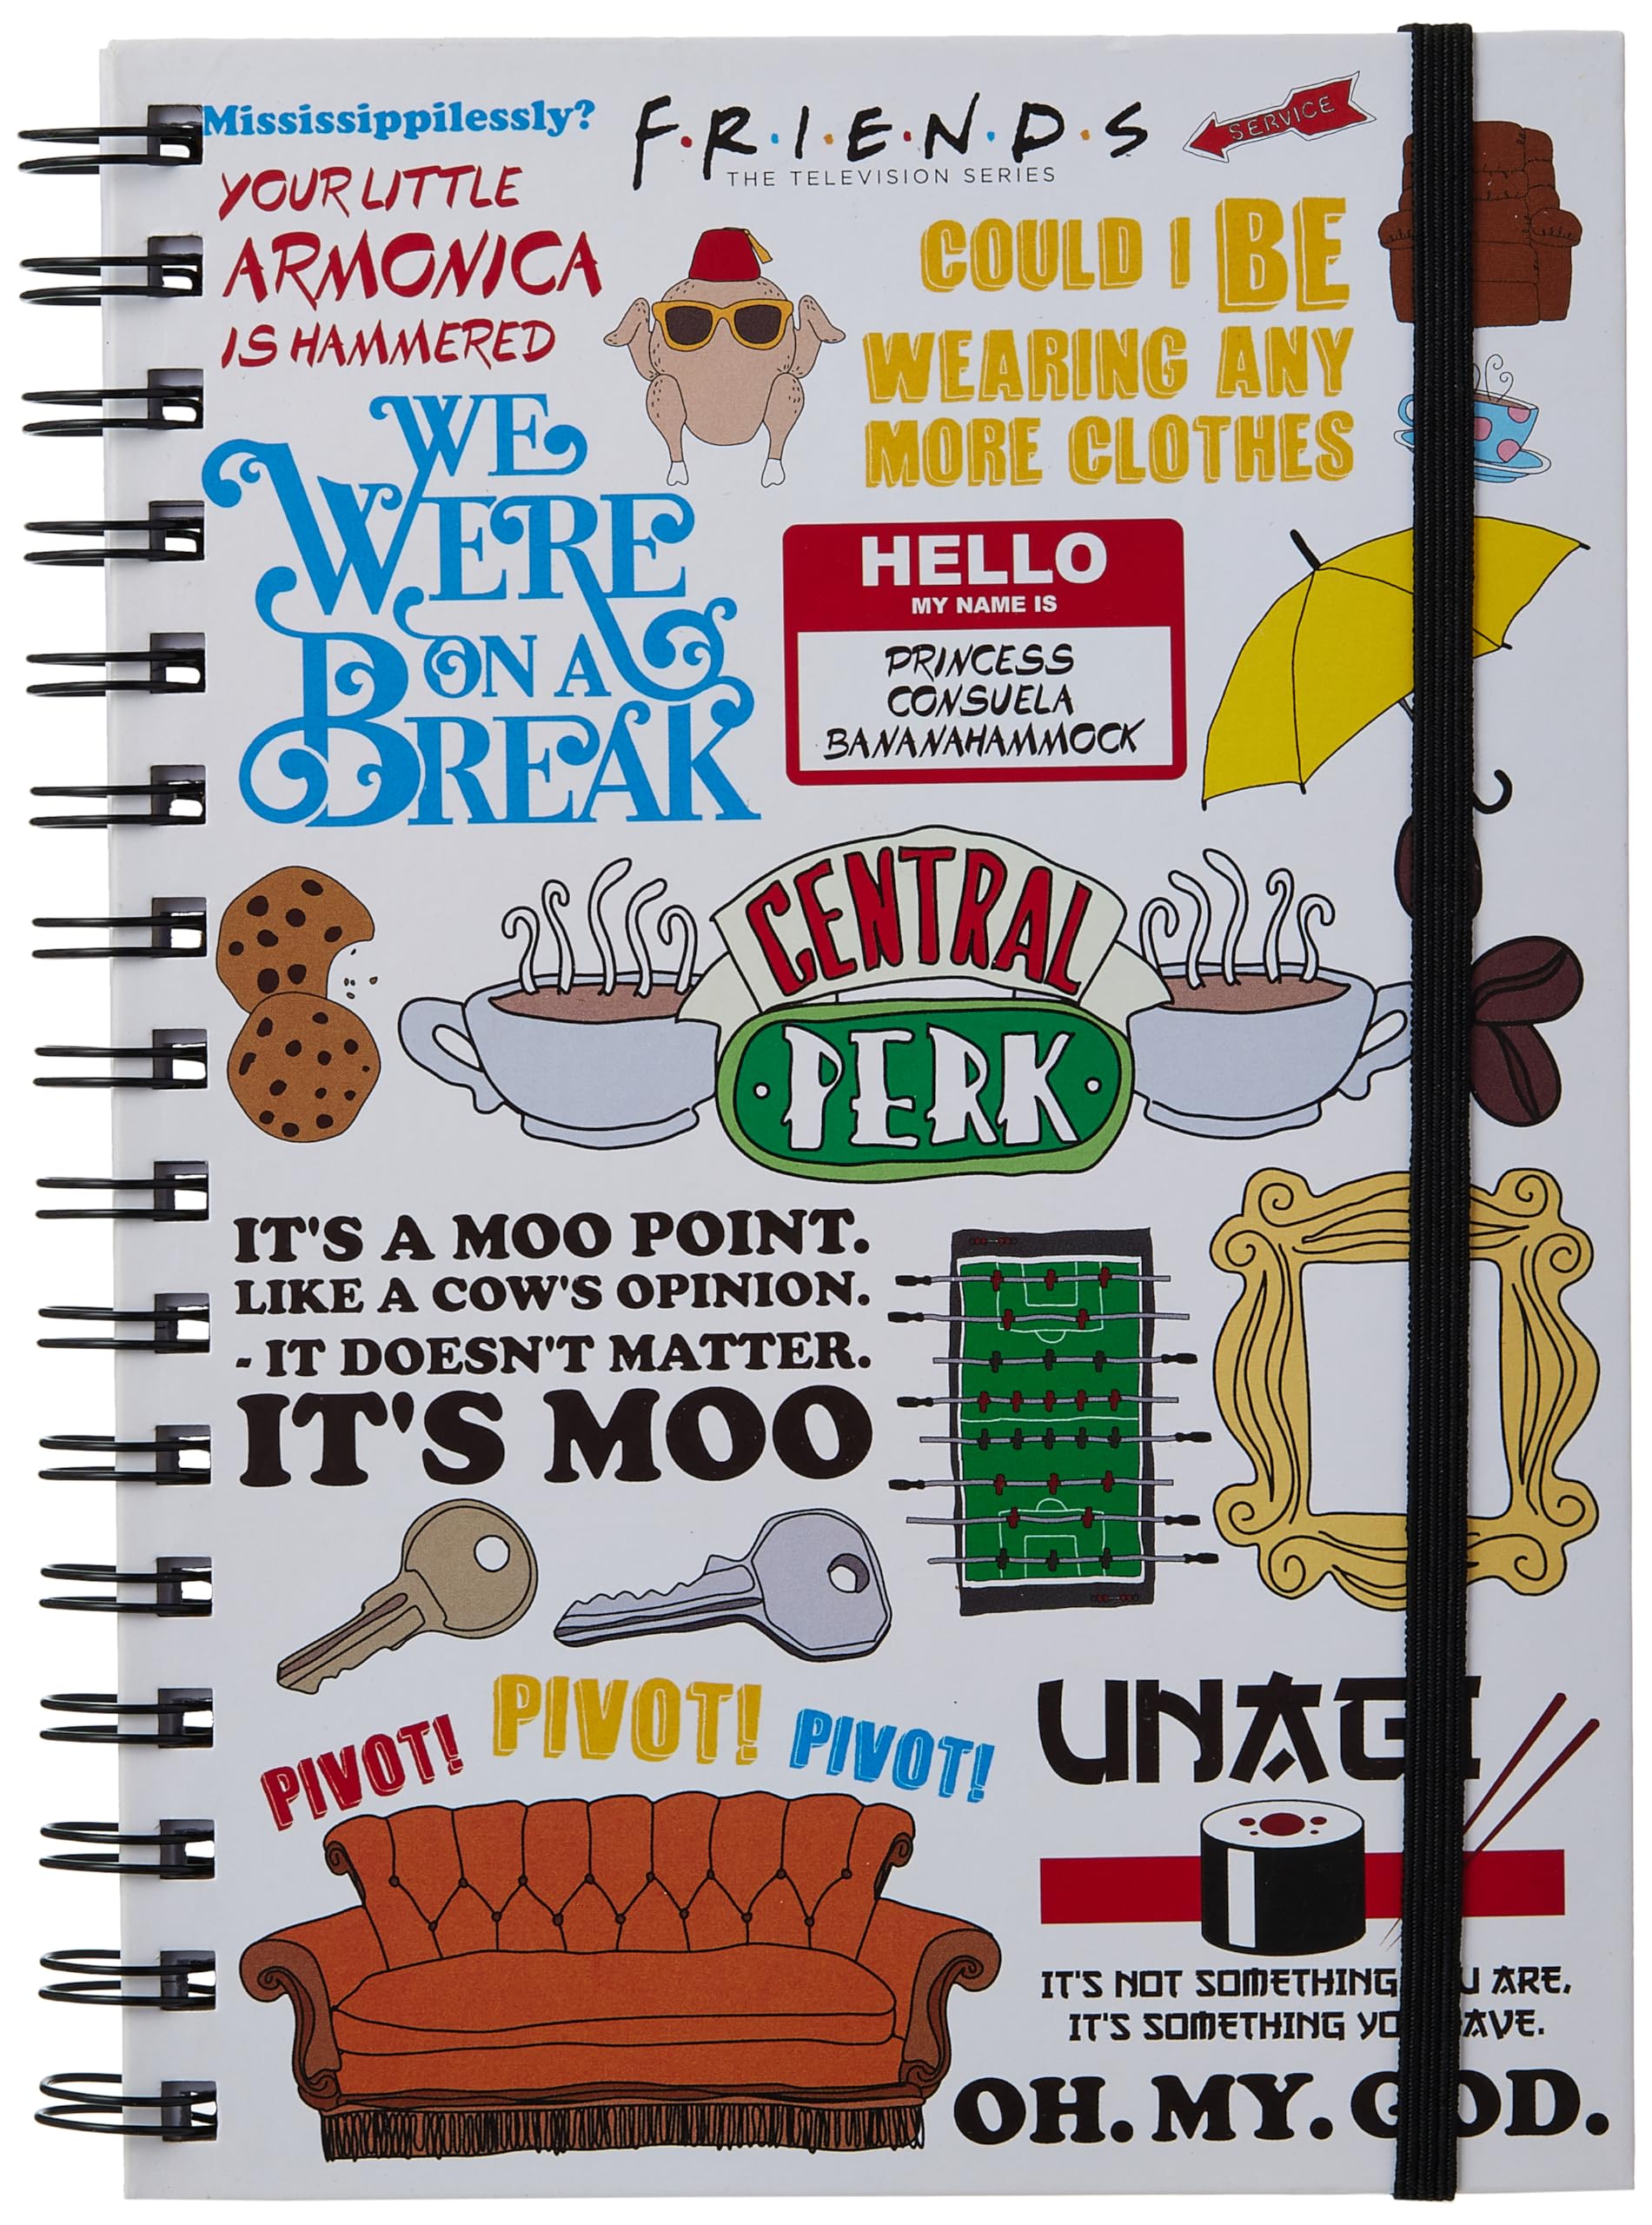 Mississippilessly?
F·R·I·E·N·D·S
THE TELEVISION SERIES
SERVICE
YOUR LITTLE
ARMONICA
IS HAMMERED
COULD I BE
WEARING ANY
MORE CLOTHES
WE
WERE
ON A
BREAK
HELLO
MY NAME IS
PRINCESS
CONSUELA
BANANAHAMMOCK
CENTRAL
PERK
IT'S A MOO POINT.
LIKE A COW'S OPINION.
- IT DOESN'T MATTER.
IT'S MOO
PIVOT! PIVOT! PIVOT!
UNAGI
IT'S NOT SOMETHING U ARE,
IT'S SOMETHING YO AVE.
OH. MY. GOD.